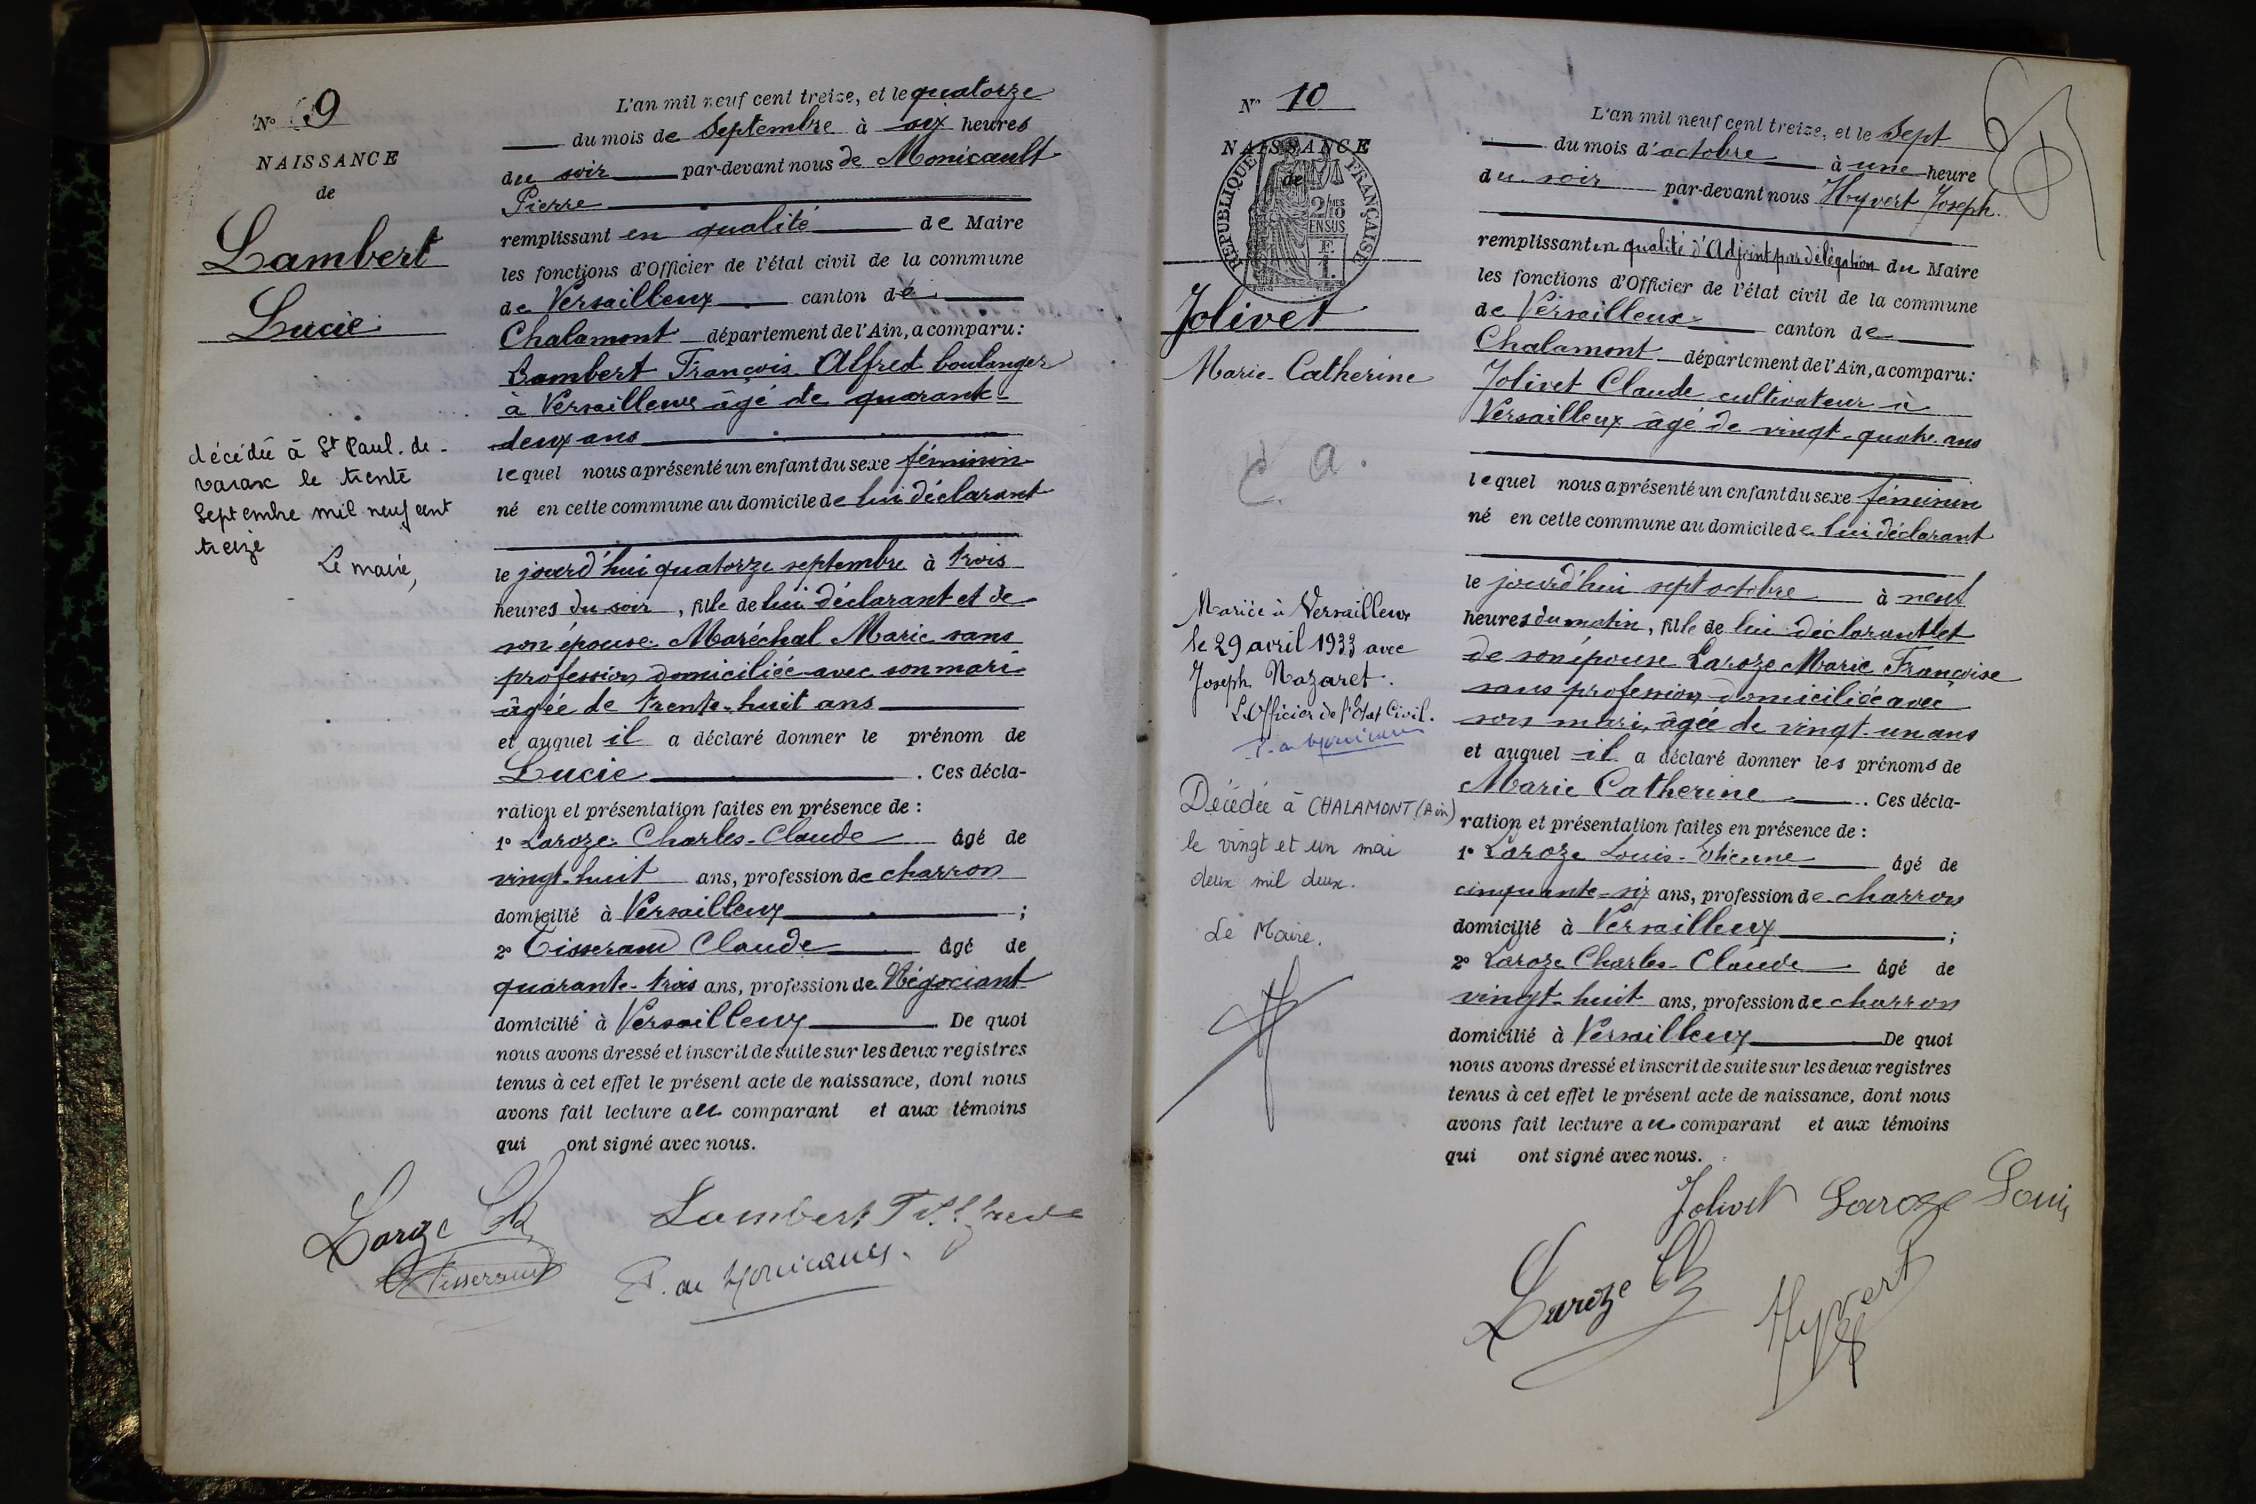 N° 9
NAISSANCE
de
Lambert
Lucie
décédée à St Paul-de-
varax le trente
septembre mil neuf cent
treize
Le maire,
L'an mil neuf cent treize, et le quatorze
du mois de Septembre à six heures
du soir par-devant nous de Monicault
Pierre
remplissant en qualité de Maire
les fonctions d'Officier de l'état civil de la commune
de Versailleux canton de
Chalamont département de l'Ain, a comparu:
Lambert François Alfred boulanger
à Versailleux âgé de quarante-
deux ans
lequel nous a présenté un enfant du sexe féminin
né en cette commune au domicile de lui déclarant
le jourd'hui quatorze septembre à trois
heures du soir, fille de lui déclarant et de
son épouse Maréchal Marie sans
profession domiciliée avec son mari
âgée de trente-huit ans
et auquel il a déclaré donner le prénom de
Lucie. Ces décla-
ration et présentation faites en présence de:
1° Laroze Charles-Claude âgé de
vingt-huit ans, profession de charron
domicilié à Versailleux;
2° Tisserand Claude âgé de
quarante-trois ans, profession de Négociant
domicilié à Versailleux De quoi
nous avons dressé et inscrit de suite sur les deux registres
tenus à cet effet le présent acte de naissance, dont nous
avons fait lecture au comparant et aux témoins
qui ont signé avec nous.
Laroze Ch Lambert
Tisserand P. de Monicault
N° 10
NAISSANCE
de
REPUBLIQUE FRANÇAISE
2/10MES
EN SUS
F.
1.
Jolivet
Marie-Catherine
Mariée à Versailleux
le 29 avril 1933 avec
Joseph Nazaret.
L'Officier de l'Etat Civil.
P. de Monicault
Décédée à CHALAMONT (Ain)
le vingt et un mai
deux mil deux.
Le Maire.
L'an mil neuf cent treize, et le Sept
du mois d'octobre à une heure
du soir par-devant nous Hyvert Joseph.
remplissant en qualité d'Adjoint par délégation du Maire
les fonctions d'Officier de l'état civil de la commune
de Versailleux canton de
Chalamont département de l'Ain, a comparu:
Jolivet Claude cultivateur à
Versailleux âgé de vingt-quatre ans
lequel nous a présenté un enfant du sexe féminin
né en cette commune au domicile de lui déclarant
le jourd'hui sept octobre à neuf
heures du matin, fille de lui déclarant et
de son épouse Laroze Marie Françoise
sans profession domiciliée avec
son mari, âgée de vingt-un ans
et auquel il a déclaré donner les prénoms de
Marie Catherine. Ces décla-
ration et présentation faites en présence de:
1° Laroze Louis-Etienne âgé de
cinquante-six ans, profession de charron
domicilié à Versailleux;
2° Laroze Charles-Claude âgé de
vingt-huit ans, profession de charron
domicilié à Versailleux De quoi
nous avons dressé et inscrit de suite sur les deux registres
tenus à cet effet le présent acte de naissance, dont nous
avons fait lecture au comparant et aux témoins
qui ont signé avec nous.
Jolivet Laroze Louis
Laroze Ch Hyvert